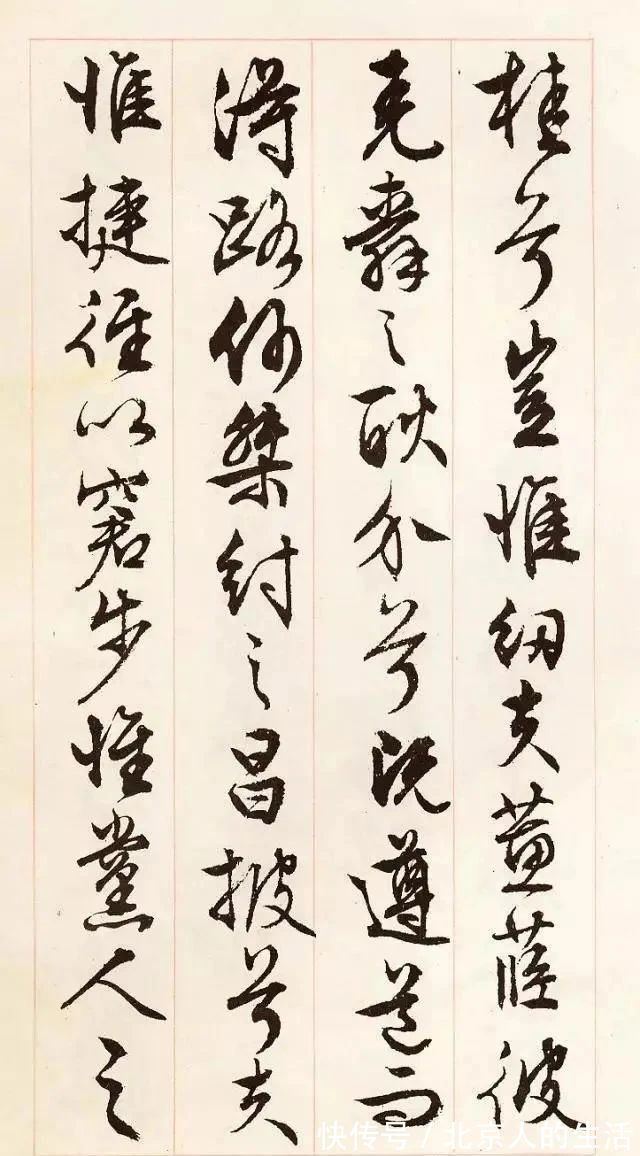 桂兮豈惟紉夫蕙茝彼
堯舜之耿介兮既遵道而
得路何桀紂之昌披兮夫
惟捷徑以窘步惟黨人之
快传号/北京人的生活